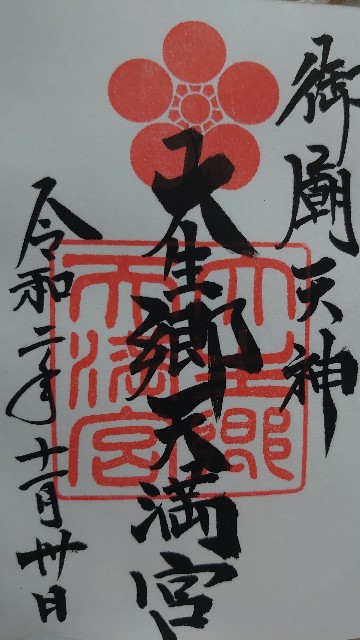 御廟天神
大生郷天満宮
令和二年十一月卅日
大生郷
天満宮